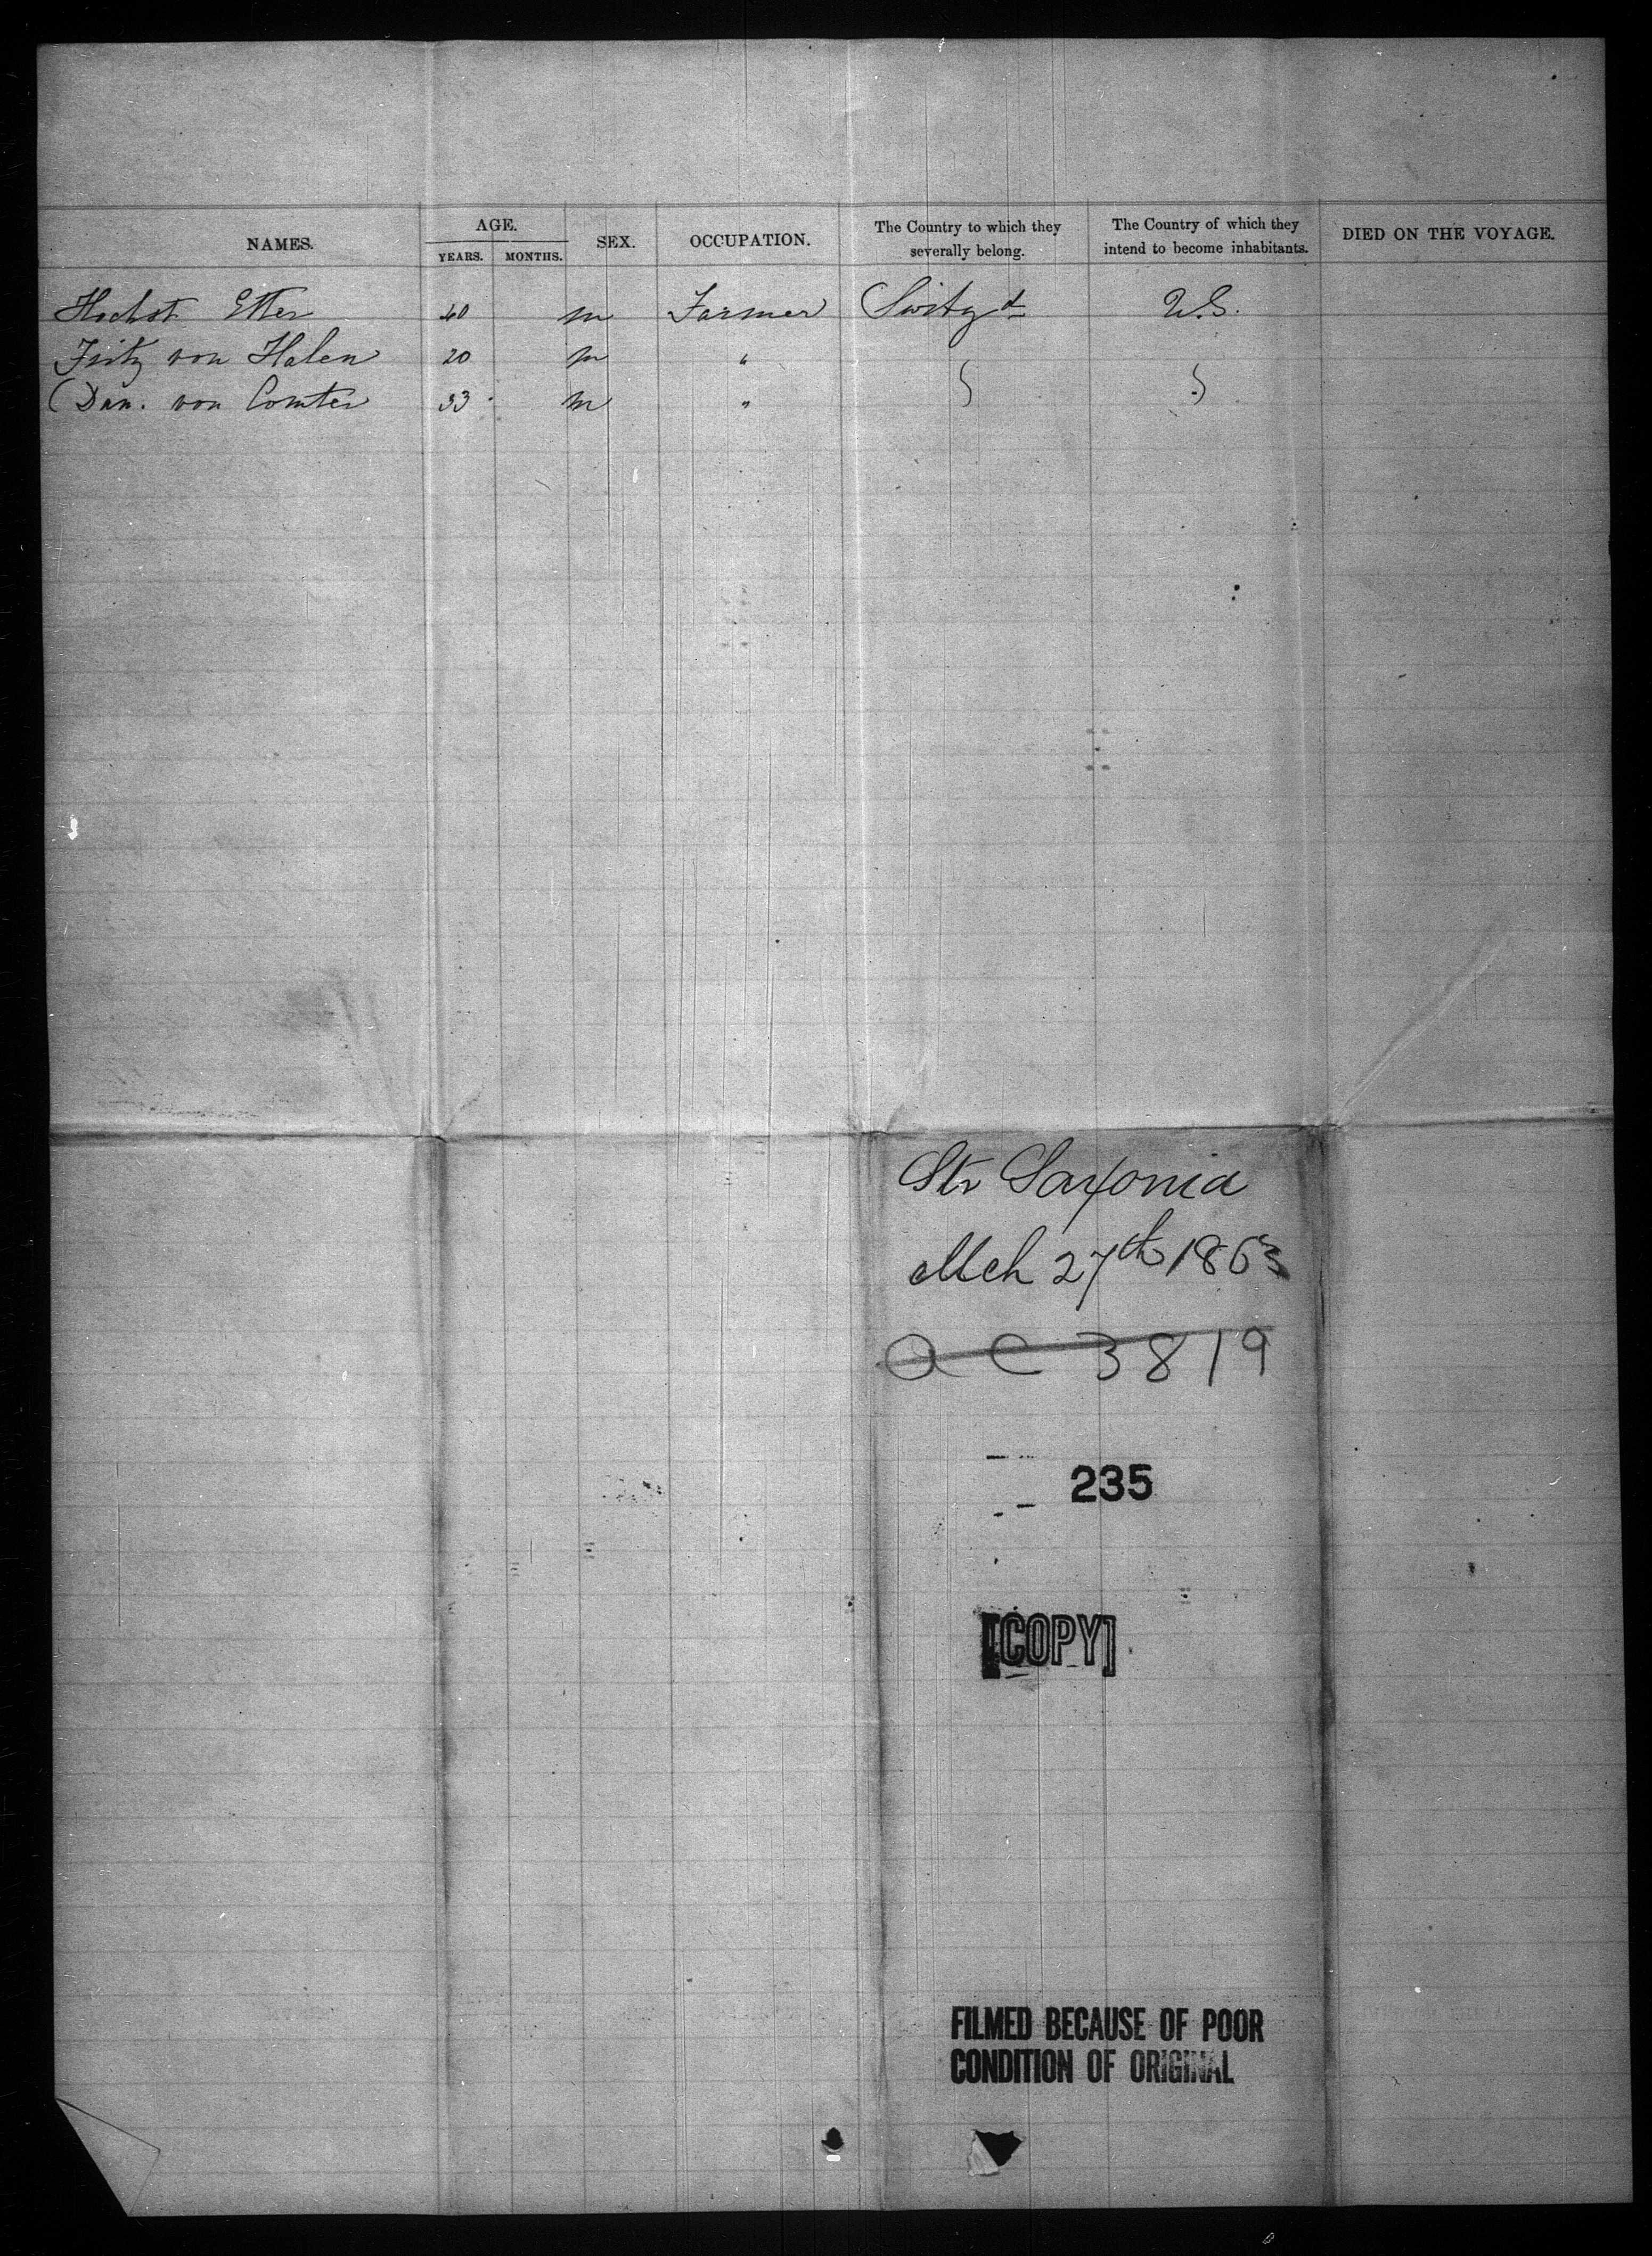 NAMES. AGE. YEARS. MONTHS. SEX. OCCUPATION. The Country to which they severally belong. The Country of which they intend to become inhabitants. DIED ON THE VOYAGE.
Hochst Etter 40 m Farmer Switzd U.S.
Fritz von Halen 20 m "
Dan. von Comter 33 m "
Str Saxonia
Mch 27th 1863
a c 3819
235
[COPY]
FILMED BECAUSE OF POOR
CONDITION OF ORIGINAL